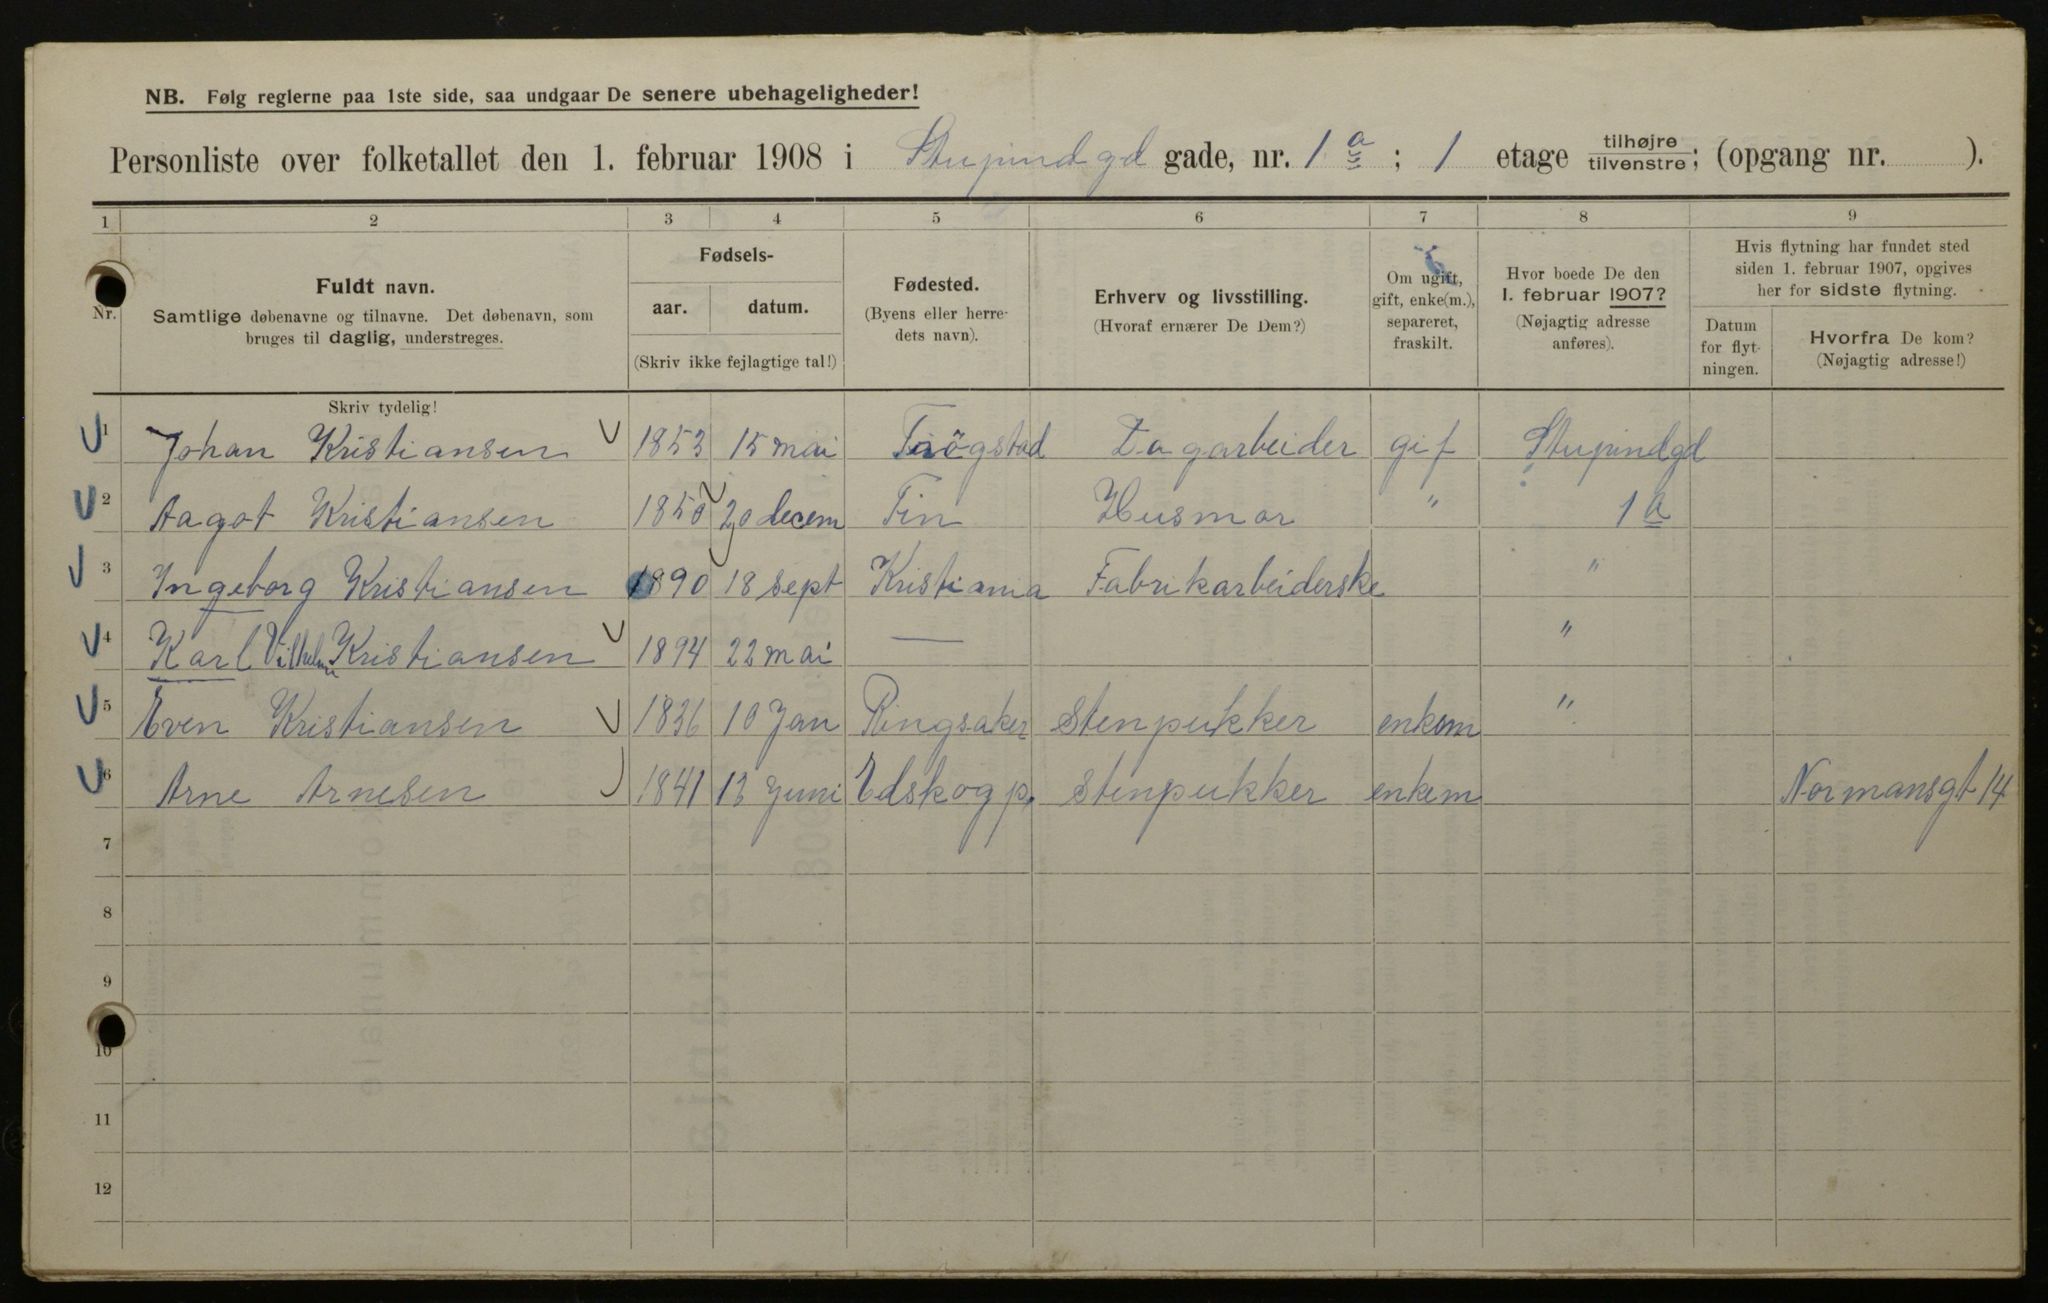 NB. Følg reglerne paa 1ste side, saa undgaar De senere ubehageligheder!
Personliste over folketallet den 1. februar 1908 i Stupindgd gade, nr. 1 a ; 1 etage tilhøjre tilvenstre; (opgang nr. ).
1 2 3 4 5 6 7 8 9
Nr.
Fuldt navn.
Samtlige døbenavne og tilnavne. Det døbenavn, som
bruges til daglig, understreges.
Fødsels-
aar. datum.
(Skriv ikke fejlagtige tal!)
Fødested.
(Byens eller herre-
dets navn).
Erhverv og livsstilling.
(Hvoraf ernærer De Dem?)
Om ugift,
gift, enke(m.),
separeret,
fraskilt.
Hvor boede De den
1. februar 1907?
(Nøjagtig adresse
anføres).
Hvis flytning har fundet sted
siden 1. februar 1907, opgives
her for sidste flytning.
Datum
for flyt-
ningen.
Hvorfra De kom?
(Nøjagtig adresse!)
Skriv tydelig!
1 Johan Kristiansen 1853 15 mai Trögstad Dagarbeider gif Stupindgd
2 Aagot Kristiansen 1850 20 decem Tin Husmor " 1 a
3 Ingeborg Kristiansen 1890 18 sept Kristiania Fabrikarbeiderske "
4 Karl Vilhelm Kristiansen 1894 22 mai — "
5 Even Kristiansen 1836 10 Jan Ringsaker Stenpukker enkem "
6 Arne Arnesen 1841 13 Juni Edskog p. Stenpukker enkem Normansgt 14
7
8
9
10
11
12